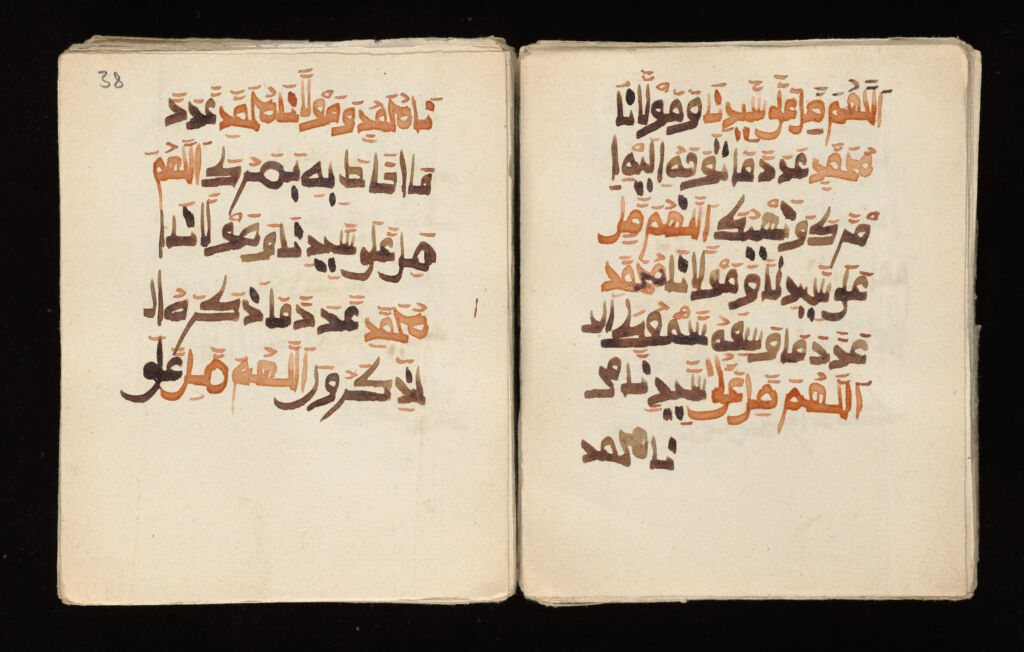 اللهم صل على سيدنا ومولانا
محمد عدد ما توجه اليه ا
مرك ونهيك اللهم صل
على سيدنا ومولانا محمد
عدد ما وسعه سمعك ال
اللهم صل على سيدنا مح
نا محمد
38
نا محمد ومولانا محمد عدد
ما احاط به بصرك اللهم
صل على سيدنا ومولانا
محمد عدد ما ذكره ال
لذكرون اللهم صل على